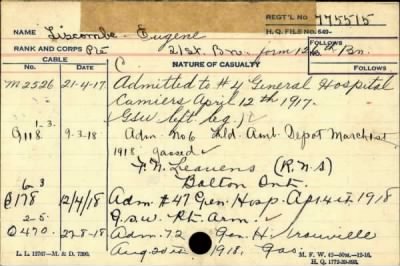 REGT'L No 775515
NAME Liscombe Eugene H. Q. FILE No. 649-
RANK AND CORPS Pte 21st. Bn. form 126th Bn.
FOLLOWS
CABLE NATURE OF CASUALTY FOLLOWS
No. DATE
M2526 21-4-17 Admitted to #4 General Hospital
Camiers April 12th 1917.
GSW left leg.
1-3
Q118 9-3-18 Adm. No 6 Fld. Amb. Depot March 1st
1918 gassed
F. N. Leavens (R.N.S)
6-3 Galton Ont.
Q178 12/4/18 Adm #47 Gen. Hosp. Ap 1st 1918
2-5. G.S.W. Rt. Arm.
Q470. 27-8-18 Adm. 72 Gen. H. Trouville
Aug 20th 1918. Gas.
L. L. 12767—M. & D. 7200. M. F. W. 42—50M.—12-16.
H. Q. 1772-39-893.